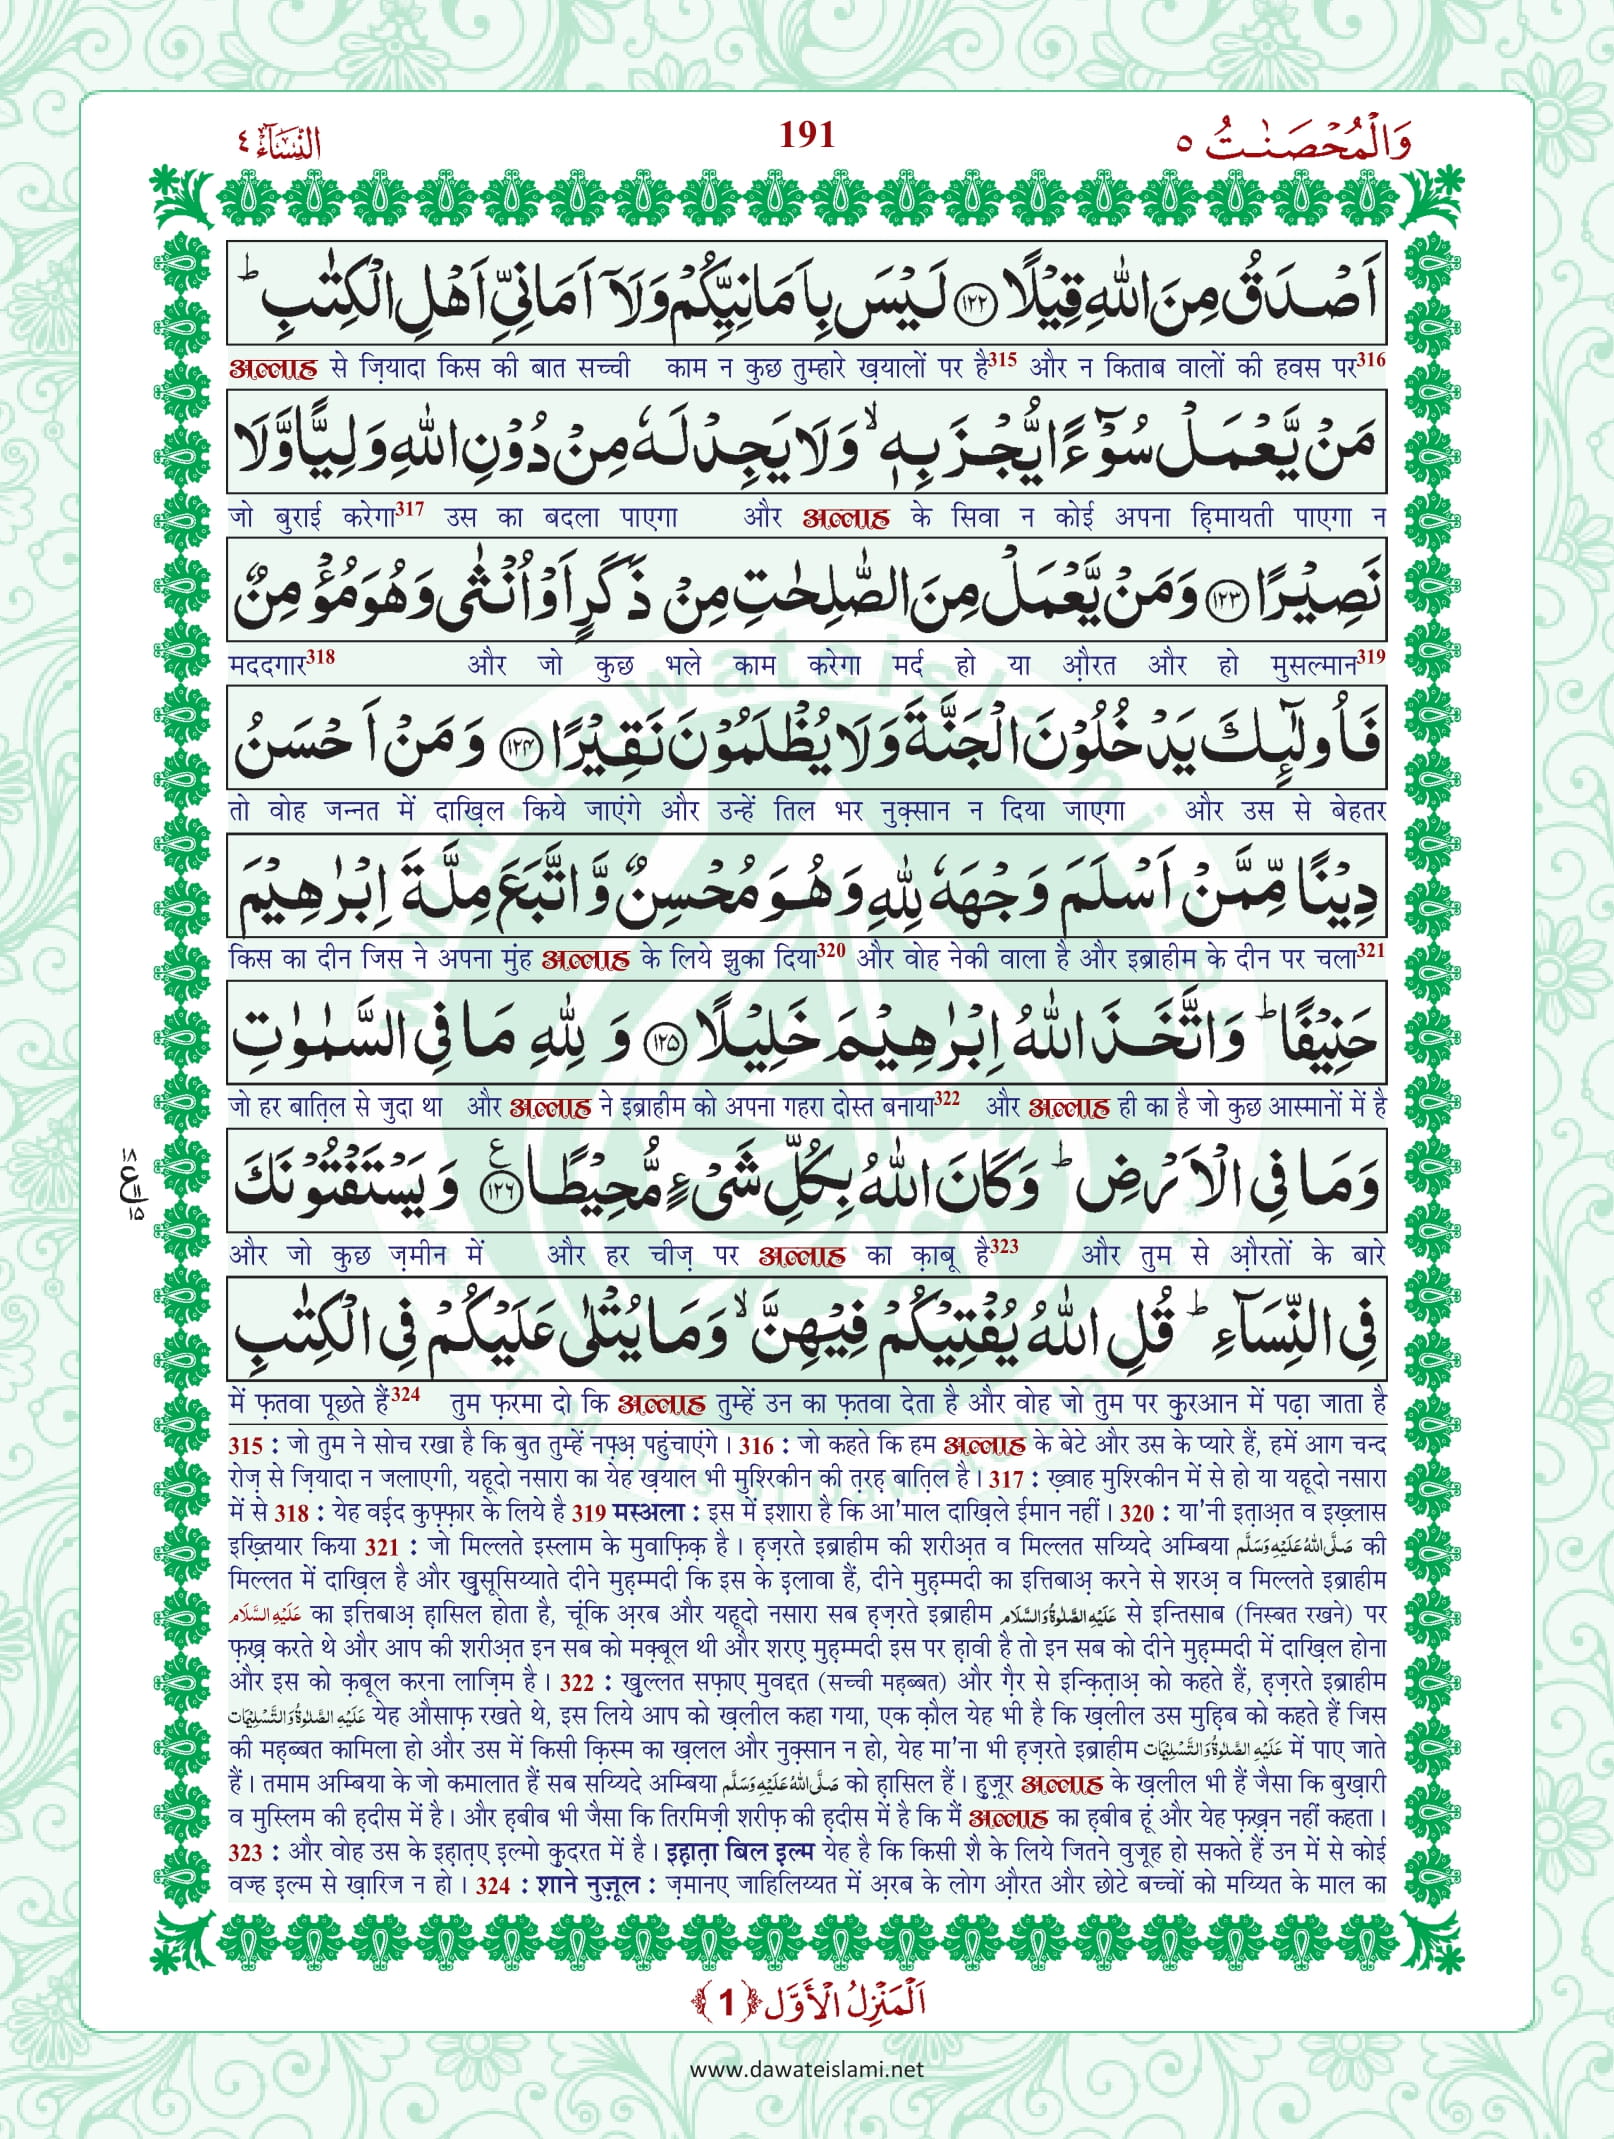 وَالْمُحْصَنٰتُ ٥
191
النِّسَآء ٤
اَصْدَقُ مِنَ اللّٰهِ قِیْلًا ﴿۱۲۲﴾ لَیْسَ بِاَمَانِیِّكُمْ وَلَاۤ اَمَانِیِّ اَهْلِ الْكِتٰبِ ؕ
अल्लाह से ज़ियादा किस की बात सच्ची काम न कुछ तुम्हारे ख़यालों पर है315 और न किताब वालों की हवस पर316
مَنْ یَّعْمَلْ سُوْٓءًا یُّجْزَ بِهٖ ۙ وَلَا یَجِدْ لَهٗ مِنْ دُوْنِ اللّٰهِ وَلِیًّا وَّلَا
जो बुराई करेगा317 उस का बदला पाएगा और अल्लाह के सिवा न कोई अपना हि़मायती पाएगा न
نَصِیْرًا ﴿۱۲۳﴾ وَمَنْ یَّعْمَلْ مِنَ الصّٰلِحٰتِ مِنْ ذَكَرٍ اَوْ اُنْثٰی وَهُوَ مُؤْمِنٌ
मददगार318 और जो कुछ भले काम करेगा मर्द हो या औ़रत और हो मुसल्मान319
فَاُولٰٓىِٕكَ یَدْخُلُوْنَ الْجَنَّةَ وَلَا یُظْلَمُوْنَ نَقِیْرًا ﴿۱۲۴﴾ وَمَنْ اَحْسَنُ
तो वोह जन्नत में दाख़िल किये जाएंगे और उन्हें तिल भर नुक़्सान न दिया जाएगा और उस से बेहतर
دِیْنًا مِّمَّنْ اَسْلَمَ وَجْهَهٗ لِلّٰهِ وَهُوَ مُحْسِنٌ وَّاتَّبَعَ مِلَّةَ اِبْرٰهِیْمَ
किस का दीन जिस ने अपना मुंह अल्लाह के लिये झुका दिया320 और वोह नेकी वाला है और इब्राहीम के दीन पर चला321
حَنِیْفًا ؕ وَاتَّخَذَ اللّٰهُ اِبْرٰهِیْمَ خَلِیْلًا ﴿۱۲۵﴾ وَلِلّٰهِ مَا فِی السَّمٰوٰتِ
जो हर बात़िल से जुदा था और अल्लाह ने इब्राहीम को अपना गहरा दोस्त बनाया322 और अल्लाह ही का है जो कुछ आस्मानों में है
وَمَا فِی الْاَرْضِ ؕ وَكَانَ اللّٰهُ بِكُلِّ شَیْءٍ مُّحِیْطًا ﴿۱۲۶﴾ ع وَیَسْتَفْتُوْنَكَ
۱۸ ع ۱۱ ۱۵
और जो कुछ ज़मीन में और हर चीज़ पर अल्लाह का क़ाबू है323 और तुम से औ़रतों के बारे
فِی النِّسَآءِ ؕ قُلِ اللّٰهُ یُفْتِیْكُمْ فِیْهِنَّ ۙ وَمَا یُتْلٰی عَلَیْكُمْ فِی الْكِتٰبِ
में फ़तवा पूछते हैं324 तुम फ़रमा दो कि अल्लाह तुम्हें उन का फ़तवा देता है और वोह जो तुम पर क़ुरआन में पढ़ा जाता है
315 : जो तुम ने सोच रखा है कि बुत तुम्हें नफ़्अ़ पहुंचाएंगे । 316 : जो कहते कि हम अल्लाह के बेटे और उस के प्यारे हैं, हमें आग चन्द
रोज़ से ज़ियादा न जलाएगी, यहूदो नसारा का येह ख़याल भी मुश्रिकीन की त़रह़ बात़िल है । 317 : ख़्वाह मुश्रिकीन में से हो या यहूदो नसारा
में से 318 : येह वई़द कुफ़्फ़ार के लिये है 319 मस्अला : इस में इशारा है कि आ'माल दाख़िले ईमान नहीं । 320 : या'नी इत़ाअ़त व इख़्लास
इख़्तियार किया 321 : जो मिल्लते इस्लाम के मुवाफ़िक़ है । ह़ज़रते इब्राहीम की शरीअ़त व मिल्लत सय्यिदे अम्बिया صَلَّی اللّٰهُ عَلَیْهِ وَسَلَّم की
मिल्लत में दाख़िल है और ख़ुसूसिय्याते दीने मुह़म्मदी कि इस के इलावा हैं, दीने मुह़म्मदी का इत्तिबाअ़ करने से शरअ़ व मिल्लते इब्राहीम
عَلَیْهِ السَّلَام का इत्तिबाअ़ ह़ासिल होता है, चूंकि अ़रब और यहूदो नसारा सब ह़ज़रते इब्राहीम عَلَیْهِ الصَّلٰوةُ وَالسَّلَام से इन्तिसाब (निस्बत रखने) पर
फ़ख़्र करते थे और आप की शरीअ़त इन सब को मक़्बूल थी और शरए मुह़म्मदी इस पर ह़ावी है तो इन सब को दीने मुह़म्मदी में दाख़िल होना
और इस को क़बूल करना लाज़िम है । 322 : ख़ुल्लत सफ़ाए मुवद्दत (सच्ची मह़ब्बत) और ग़ैर से इन्क़ित़ाअ़ को कहते हैं, ह़ज़रते इब्राहीम
عَلَیْهِ الصَّلٰوةُ وَالتَّسْلِیْمَات येह औसाफ़ रखते थे, इस लिये आप को ख़लील कहा गया, एक क़ौल येह भी है कि ख़लील उस मुह़िब को कहते हैं जिस
की मह़ब्बत कामिला हो और उस में किसी क़िस्म का ख़लल और नुक़्सान न हो, येह मा'ना भी ह़ज़रते इब्राहीम عَلَیْهِ الصَّلٰوةُ وَالتَّسْلِیْمَات में पाए जाते
हैं । तमाम अम्बिया के जो कमालात हैं सब सय्यिदे अम्बिया صَلَّی اللّٰهُ عَلَیْهِ وَسَلَّم को ह़ासिल हैं । हु़ज़ूर अल्लाह के ख़लील भी हैं जैसा कि बुख़ारी
व मुस्लिम की ह़दीस में है । और ह़बीब भी जैसा कि तिरमिज़ी शरीफ़ की ह़दीस में है कि मैं अल्लाह का ह़बीब हूं और येह फ़ख़्रन नहीं कहता ।
323 : और वोह उस के इह़ात़ए इ़ल्मो क़ुदरत में है । इह़ात़ा बिल इ़ल्म येह है कि किसी शै के लिये जितने वुजूह हो सकते हैं उन में से कोई
वज्ह इ़ल्म से ख़ारिज न हो । 324 : शाने नुज़ूल : ज़मानए जाहिलिय्यत में अ़रब के लोग औ़रत और छोटे बच्चों को मय्यित के माल का
اَلْمَنْزِلُ الْاَوَّل ﴿1﴾
www.dawateislami.net